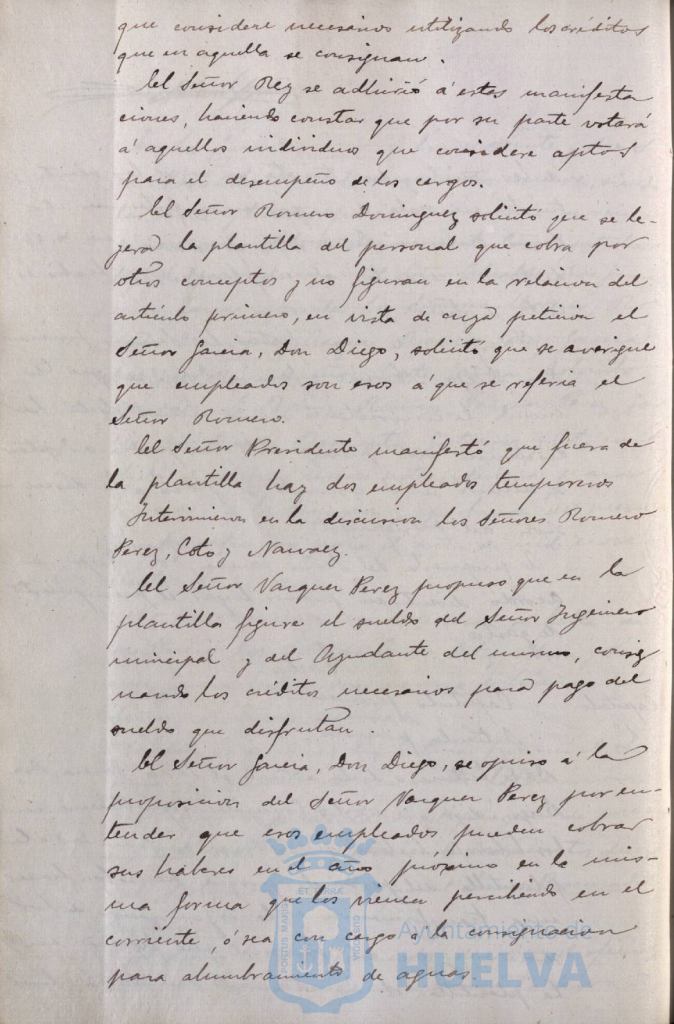 que considere necesarios utilizando los créditos
que en aquella se consignan.
El Señor Rey se adhirió á estas manifesta
ciones, haciendo constar que por su parte votará
á aquellos individuos que considere aptos
para el desempeño de los cargos.
El Señor Romero Dominguez solicitó que se le-
yera la plantilla del personal que cobra por
otros conceptos y no figuran en la relacion del
articulo primero, en vista de cuya peticion el
Señor Garcia, Don Diego, solicitó que se averigue
que empleados son esos á que se referia el
Señor Romero.
El Señor Presidente manifestó que fuera de
la plantilla hay dos empleados temporeros
Intervinieron en la discusion los Señores Romero
Perez, Coto y Narvaez.
El Señor Vazquez Perez propuso que en la
plantilla figure el sueldo del Señor Ingeniero
municipal y del Ayudante del mismo, consig
nando los créditos necesarios para pago del
sueldo que disfrutan.
El Señor Garcia, Don Diego, se opuso á la
proposicion del Señor Vazquez Perez por en-
tender que esos empleados pueden cobrar
sus haberes en el año próximo en la mis-
ma forma que los vienen percibiendo en el
corriente, ó sea con cargo á la consignacion
para alumbramiento de aguas
Ayuntamiento de
HUELVA